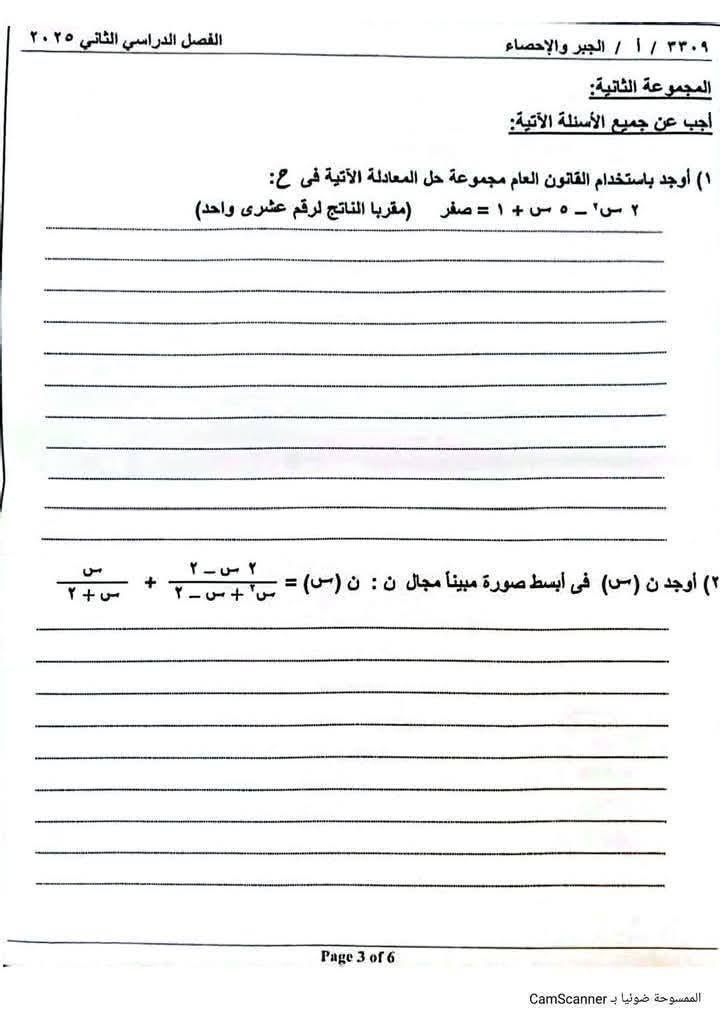 ٣٣٠٩ / أ / الجبر والإحصاء الفصل الدراسي الثاني ٢٠٢٥
المجموعة الثانية:
أجب عن جميع الأسئلة الآتية:
١) أوجد باستخدام القانون العام مجموعة حل المعادلة الآتية فى ح:
٢ س² – ٥ س + ١ = صفر (مقربا الناتج لرقم عشرى واحد)
٢) أوجد ن (س) فى أبسط صورة مبيناً مجال ن : ن (س) = ٢ س – ٢ / س² + س – ٢ + س / س + ٢
Page 3 of 6
الممسوحة ضوئيا بـ CamScanner